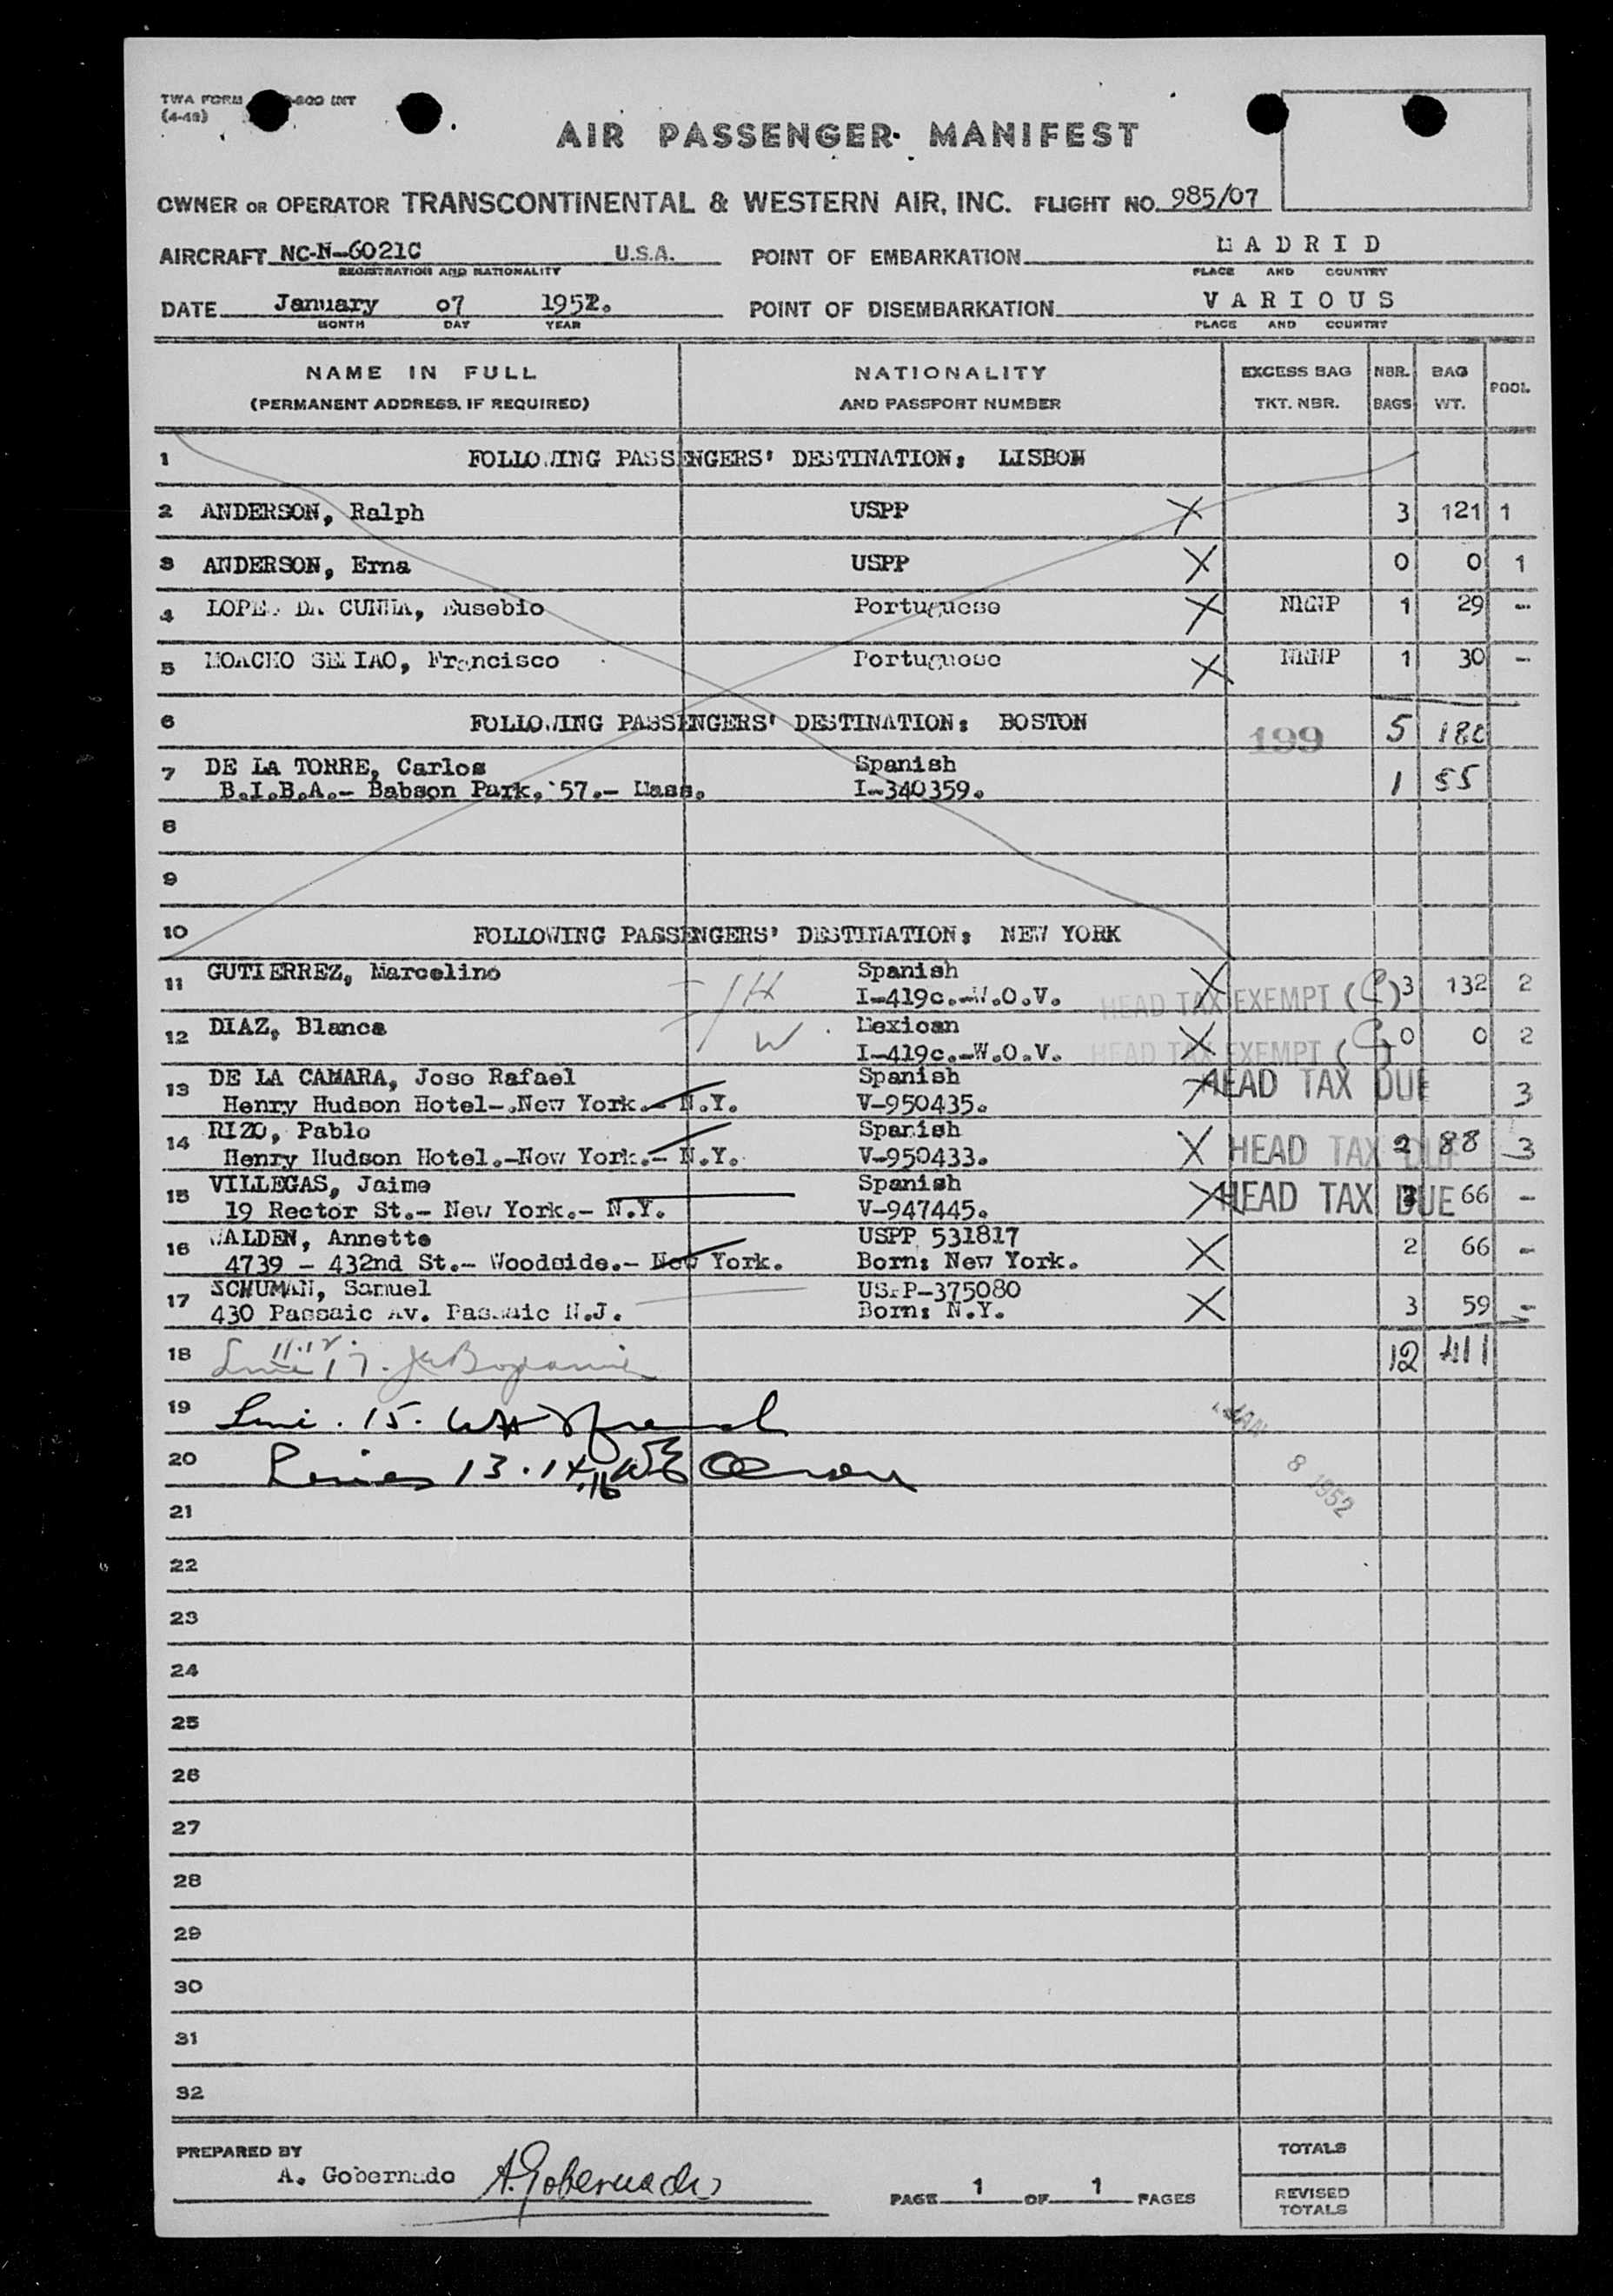 TWA FORM -800 INT
(4-48)
AIR PASSENGER MANIFEST
OWNER OR OPERATOR TRANSCONTINENTAL & WESTERN AIR, INC. FLIGHT NO. 985/07
AIRCRAFT NC-N-6021C U.S.A. POINT OF EMBARKATION MADRID
REGISTRATION AND NATIONALITY PLACE AND COUNTRY
DATE January 07 1952. POINT OF DISEMBARKATION VARIOUS
MONTH DAY YEAR PLACE AND COUNTRY
NAME IN FULL NATIONALITY EXCESS BAG NBR. BAG POOL
(PERMANENT ADDRESS, IF REQUIRED) AND PASSPORT NUMBER TKT. NBR. BAGS WT.
1 FOLLOWING PASSENGERS' DESTINATION: LISBON
2 ANDERSON, Ralph USPP X 3 121 1
3 ANDERSON, Erna USPP X 0 0 1
4 LOPES DA CUNHA, Eusebio Portuguese X 1 29 -
5 Francisco Portuguese X 1 30 -
6 FOLLOWING PASSENGERS' DESTINATION: BOSTON 199 5 180
7 DE LA TORRE, Carlos Spanish
B.I.B.A.- Babson Park, 57.- Mass. I-340359. 1 55
8
9
10 FOLLOWING PASSENGERS' DESTINATION: NEW YORK
11 GUTIERREZ, Marcelino Spanish X
H I-419c.-W.O.V. HEAD TAX EXEMPT ( ) 3 132 2
12 DIAZ, Blanca Mexican X 0 0 2
W I-419c.-W.O.V. HEAD TAX EXEMPT ( )
13 DE LA CAMARA, Jose Rafael Spanish X HEAD TAX DUE
Henry Hudson Hotel-.New York.- N.Y. V-950435. 3
14 RIZO, Pablo Spanish X HEAD TAX DUE 2 88 3
Henry Hudson Hotel.-New York.- N.Y. V-950433.
15 VILLEGAS, Jaime Spanish X HEAD TAX DUE 66 -
19 Rector St.- New York.- N.Y. V-947445.
16 WALDEN, Annette USPP 531817 X 2 66 -
4739 - 432nd St.- Woodside.- New York. Born: New York.
17 SCHUMAN, Samuel USPP-375080 X 3 59 -
430 Passaic Av. Passaic N.J. Born: N.Y.
18 11.12. 17. 12 411
19 15.
20 Lines 13.14,16
JAN 8 1952
21
22
23
24
25
26
27
28
29
30
31
32
PREPARED BY TOTALS
A. Gobernado A. Gobernado
PAGE 1 OF 1 PAGES REVISED TOTALS